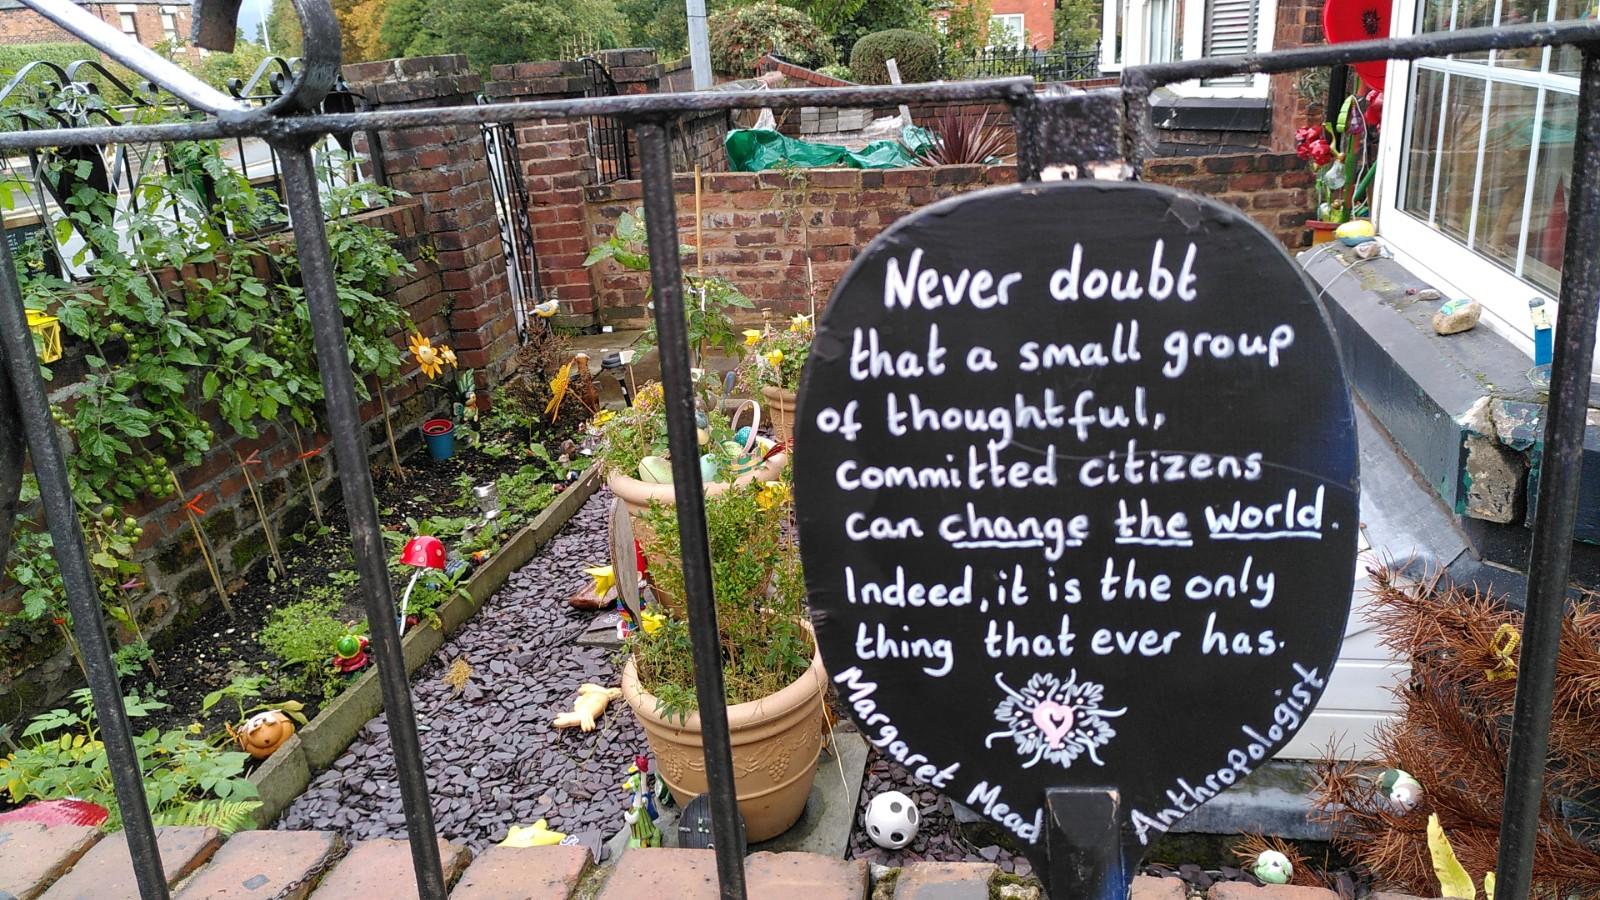 Never doubt
that a small group
of thoughtful,
committed citizens
can change the world.
Indeed, it is the only
thing that ever has.
Margaret Mead Anthropologist